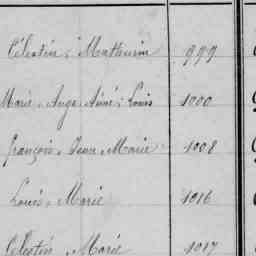 Célestin, Mathurin 999
Marie, Ange Aimé, Louis 1000
François, Jean Marie 1008
Louis, Marie 1016
Célestin, Marie 1017